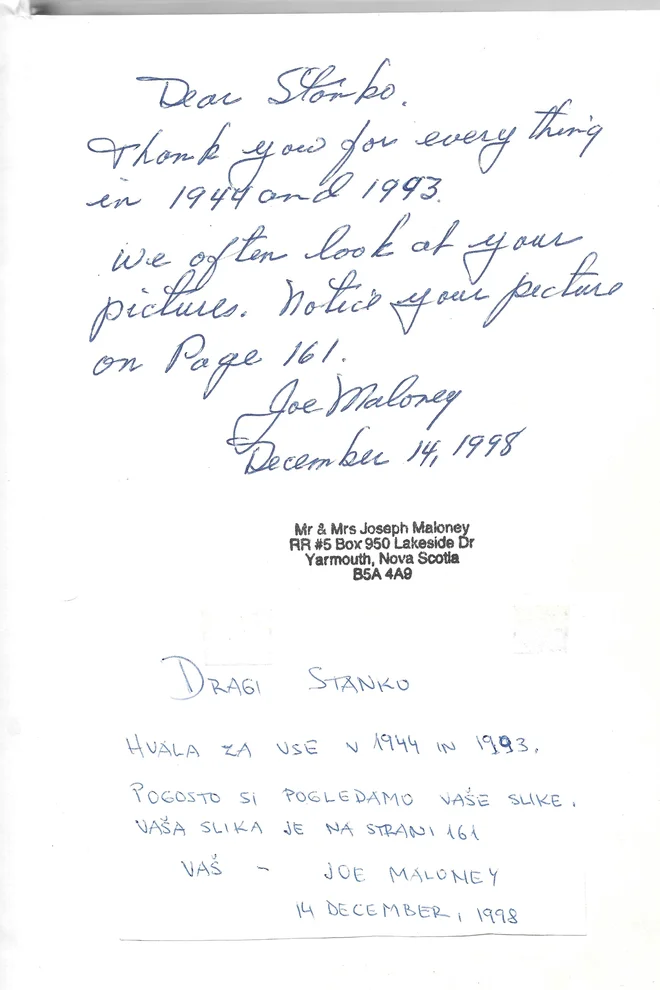 Dear Stanko.
Thank you for every thing
in 1944 and 1993.
We often look at your
pictures. Notice your picture
on Page 161.
Joe Maloney
December 14, 1998
Mr & Mrs Joseph Maloney
RR #5 Box 950 Lakeside Dr
Yarmouth, Nova Scotia
B5A 4A9
DRAGI STANKO
HVALA ZA VSE V 1944 IN 1993.
POGOSTO SI POGLEDAMO VAŠE SLIKE.
VAŠA SLIKA JE NA STRANI 161
VAŠ - JOE MALONEY
14 DECEMBER, 1998